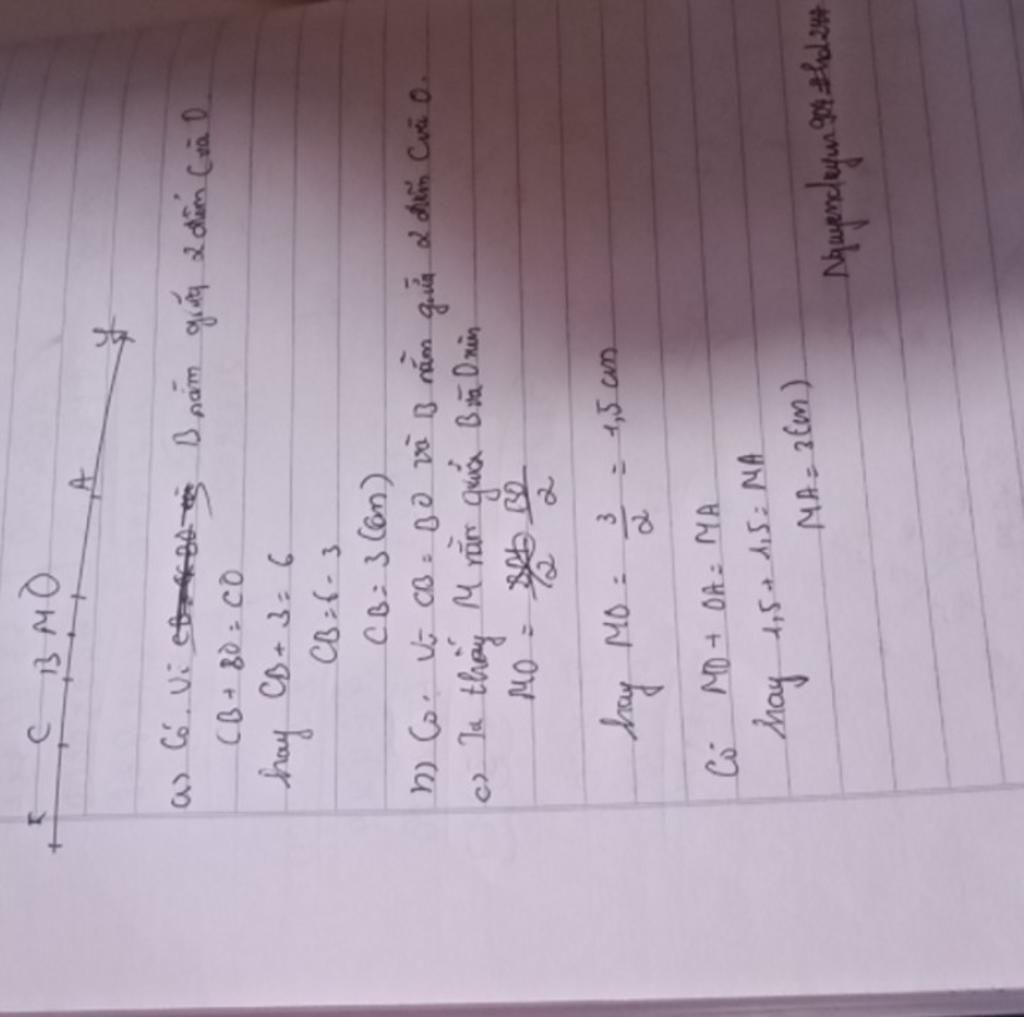 x C B M O A y
a) Có. Vì B nằm giữa 2 điểm C và O
CB + BO = CO
hay CB + 3 = 6
CB = 6 - 3
CB = 3 (cm)
b) Có. Vì CB = BO và B nằm giữa 2 điểm C và O.
c) Ta thấy M nằm giữa B và O nên
MO = BO/2
hay MO = 3/2 = 1,5 cm
Có MO + OA = MA
hay 1,5 + 1,5 = MA
MA = 3 (cm)